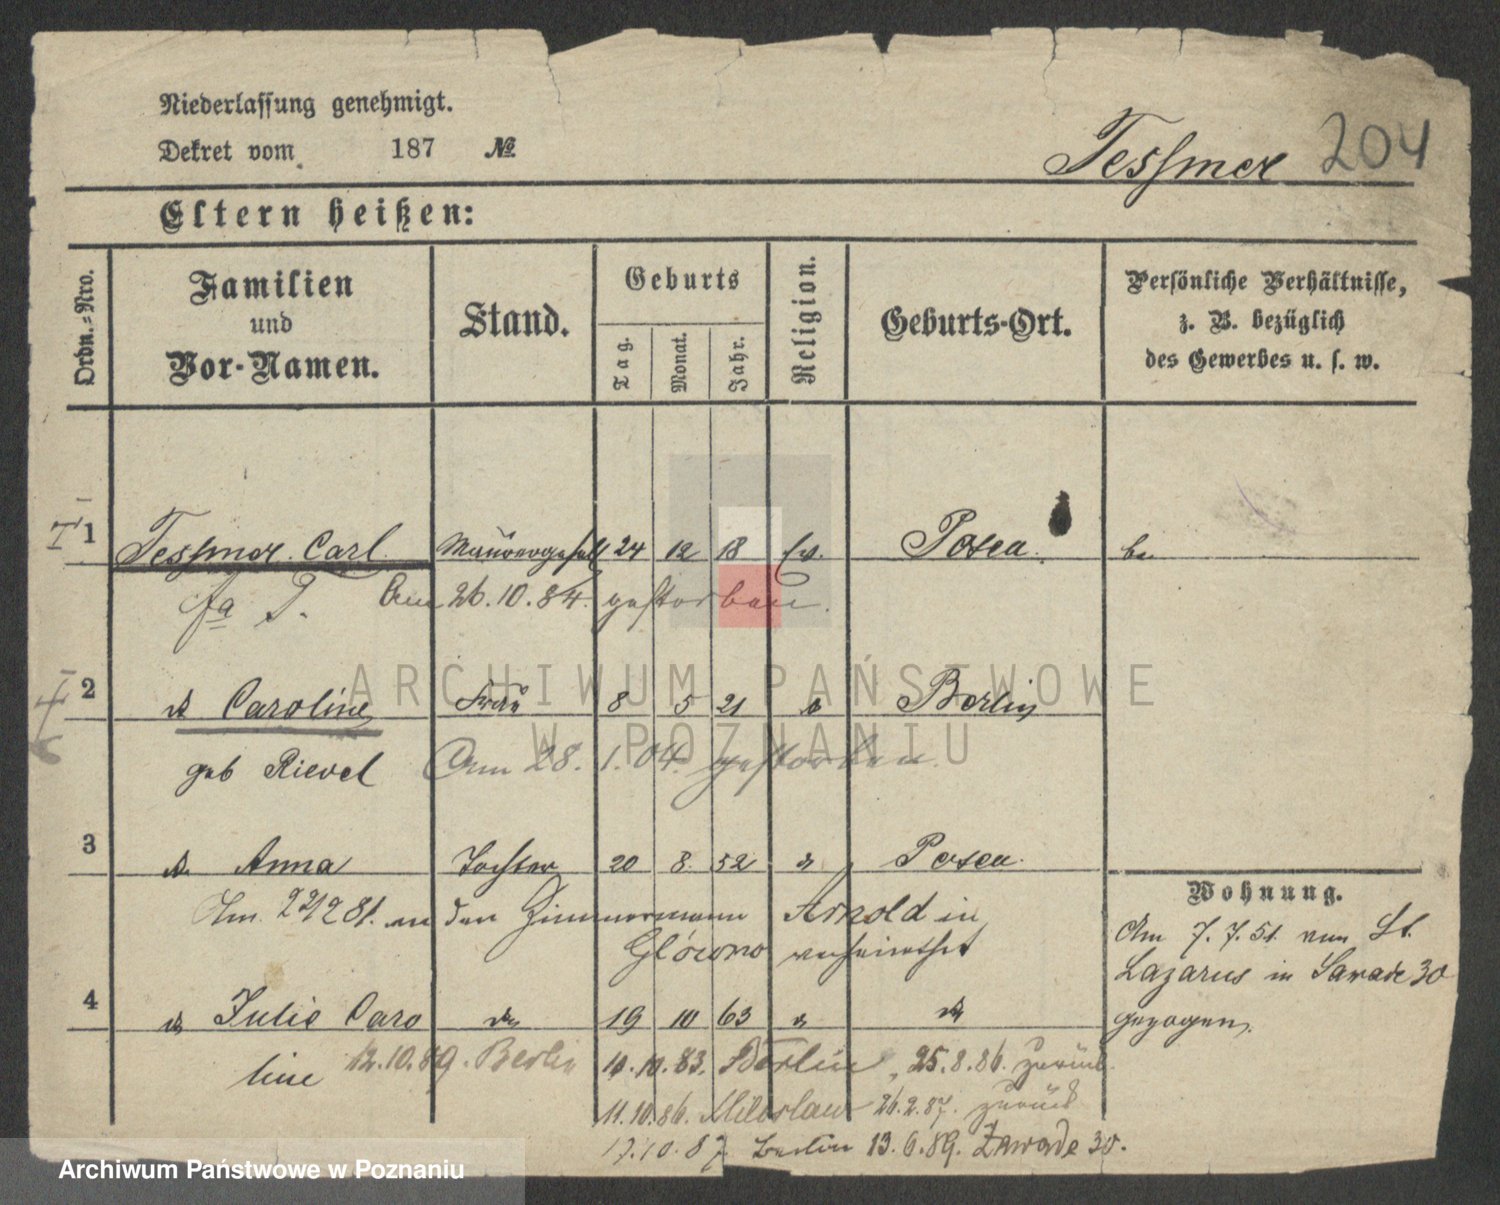 Niederlassung genehmigt.
Dekret vom 187 №
Tessmer 204
Eltern heißen:
Ordn.-Nro.
Familien und Vor-Namen.
Stand.
Geburts
Tag.
Monat.
Jahr.
Religion.
Geburts-Ort.
Persönliche Verhältnisse,
z. B. bezüglich
des Gewerbes u. s. w.
1 Tessmer Carl Maurergesell 24 12 18 Ev. Posen
Am 26.10.84. gestorben.
2 Caroline Frau 8 5 21 Berlin
geb Rievel Am 28.1.04. gestorben.
3 Anna Tochter 20 8. 52 Posen.
Am 22/2 81. an den Zimmermann Arnold in
Glówno verheirathet
Wohnung.
Am 7.7.51. von St.
Lazarus in Sawade 30
gezogen.
4 Julie Caro 19 10 63
line 12.10.89. Berlin 10.10.83. Berlin, 25.8.86. zurück.
11.10.86. Miloslaw 26.2.87. zurück
17.10.87. Berlin 13.6.89. Zawade 30.
ARCHIWUM PAŃSTWOWE
W POZNANIU
Archiwum Państwowe w Poznaniu